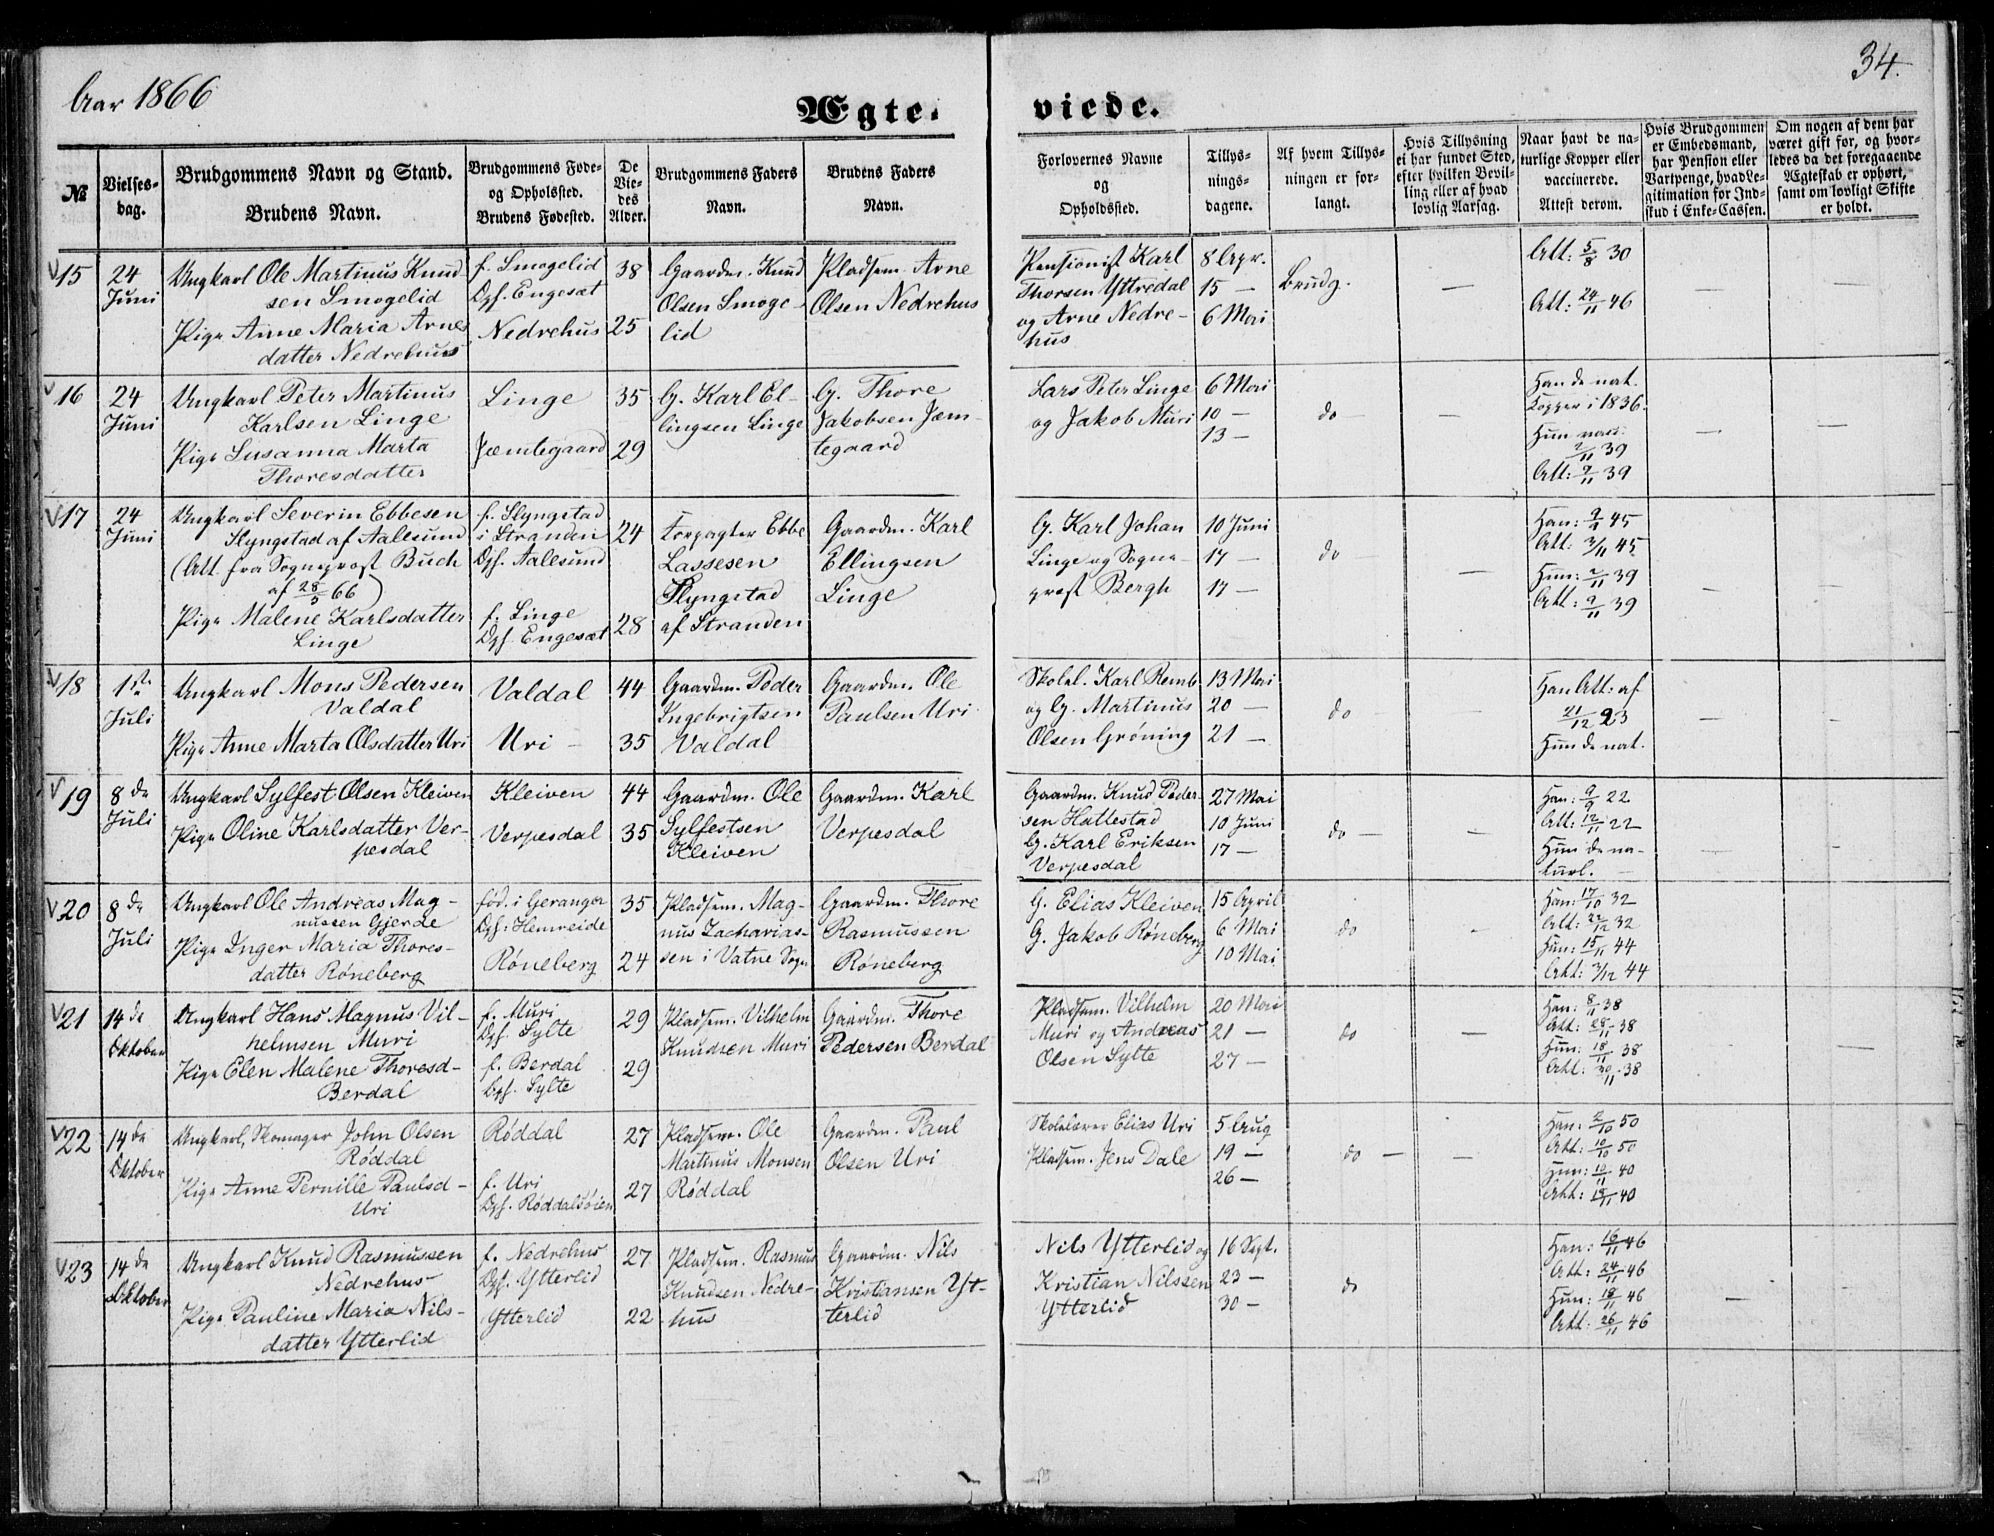 Aar 1866
34.
Ægte-
viede.
№
Vielses-
dag.
Brudgommens Navn og Stand.
Brudens Navn.
Brudgommens Føde-
og Opholdssted.
Brudens Fødested.
De
Vie-
des
Alder.
Brudgommens Faders
Navn.
Brudens Faders
Navn.
Forlovernes Navne
og
Opholdssted.
Tillys-
nings-
dagene.
Af hvem Tillys-
ningen er for-
langt.
Hvis Tillysning
ei har fundet Sted,
efter hvilken Bevil-
ling eller af hvad
lovlig Aarsag.
Naar havt de na-
turlige Kopper eller
vaccinerede.
Attest derom.
Hvis Brudgommen
er Embedsmand,
har Pension eller
Vartpenge, hvad Le-
gitimation for Ind-
skud i Enke-Cassen.
Om nogen af dem har
været gift før, og hvor-
ledes da det foregaaende
Ægteskab er ophørt,
samt om lovligt Skifte
er holdt.
15
24
Juni
Ungkarl Ole Martinus Knud
sen Smogelid
Pige Anne Maria Arnes
datter Nedrehuus
f. Smogelid
Opf. Engesæt
Nedrehus
38
25
Gaardm. Knud
Olsen Smoge-
lid
Pladsem. Arne
Olsen Nedrehus
Pensionist Karl
Thorsen Yttredal
og Arne Nedre-
hus
8 Apr.
15 —
6 Mai
Brudg.
—
Att: 5/8 30
Att: 24/11 46
—
—
16
24
Juni
Ungkarl Peter Martinus
Karlsen Linge
Pige Susanna Marta
Thoresdatter
Linge
Jæmtegaard
35
29
G. Karl El-
lingsen Linge
G. Thore
Jakobsen Jæm-
tegaard
Lars Peter Linge
og Jakob Muri
6 Mai
10 —
13 —
do
—
Han de nat.
Kopper i 1836.
Hun vacc.
2/11 39
Att: 9/11 39
—
—
17
24
Juni
Ungkarl Severin Ebbesen
Slyngstad af Aalesund
(Att. fra Sogneprest Buch
af 28/5 66)
Pige Malene Karlsdatter
Linge
f. Slyngstad
i Stranden
Opf. Aalesund
f. Linge
Opf. Engesæt
24
28
Forpagter Ebbe
Lassesen
Slyngstad
af Stranden
Gaardm. Karl
Ellingsen
Linge
G. Karl Johan
Linge og Sogne-
prest Bergh
10 Juni
17 —
17 —
do
—
Han: 2/11 45
Att: 3/11 45
Hun: 2/11 39
Att: 9/11 39
—
18
1ste
Juli
Ungkarl Mons Pedersen
Valdal
Pige Anne Marta Olsdatter Uri
Valdal
Uri —
44
35
Gaardm. Peder
Ingebrigtsen
Valdal
Gaardm. Ole
Paulsen Uri
Skolel. Karl Remb
og G. Martinus
Olsen Grøning
13 Mai
20 —
21 —
do
—
Han Att: af
21/12 23
Hun de nat.
—
—
19
8de
Juli
Ungkarl Sylfest Olsen Kleiven
Pige Oline Karlsdatter Ver-
pesdal
Kleiven
Verpesdal
44
35
Gaardm. Ole
Sylfestsen
Kleiven
Gaardm. Karl
Verpesdal
Gaardm. Knud Peder
sen Hattestad
G. Karl Eriksen
Verpesdal
27 Mai
10 Juni
17 —
do
—
Han: 9/9 22
Att: 12/11 22
Hun de na-
turl.
—
—
20
8de
Juli
Ungkarl Ole Andreas Mag-
nussen Gjerde
Pige Inger Maria Thores-
datter Røneberg
fød. i Geranger
Opf: Hemreide
Røneberg
35
24
Pladsem. Mag-
nus Zacharias-
sen i Vatne Sogn
Gaardm. Thore
Rasmussen
Røneberg
G. Elias Kleiven
G. Jakob Røneberg
15 April
6 Mai
10 Mai
do
-
Han: 17/10 32
Att: 22/12 32
Hun: 15/11 44
Att: 3/12 44
21
14de
Oktober
Ungkarl Hans Magnus Vil-
helmsen Muri
Pige Elen Malene Thoresd-
Berdal
f. Muri
Opf. Sylte
f. Berdal
Opf. Sylte
29
29
Pladsem. Vilhelm
Knudsen Muri
Gaardm. Thore
Pedersen Berdal
Pladsem. Vilhelm
Muri og Andreas
Olsen Sylte
20 Mai
21 —
27 —
do
—
Han: 8/11 38
Att: 28/11 38
Hun: 18/11 38
Att: 30/11 38
—
22
14de
Oktober
Ungkarl, Skomager John Olsen
Røddal
Pige Anne Pernille Paulsd-
Uri
Røddal
f. Uri
Opf. Røddalsøien
27
27
Pladsem. Ole
Martinus Monsen
Røddal
Gaardm. Paul
Olsen Uri
Skolelærer Elias Uri
Pladsem. Jens Dale
5 Aug
19 —
26 —
do —
—
Han: 2/10 50
Att: 10/10 50
Hun: 10/11 40
Att: 18/11 40
23
14de
Oktober
Ungkarl Knud Rasmussen
Nedrehus
Pige Pauline Maria Nils-
datter Ytterlid
f. Nedrehus
Opf. Ytterlid
Ytterlid
27
22
Pladsem. Rasmus
Knudsen Nedre-
hus
Gaardm. Nils
Kristiansen Yt-
terlid
Nils Ytterlid og
Kristian Nilssen
Ytterlid
16 Sept.
23 —
30 —
do
Han: 16/11 46
Att: 24/11 46
Hun: 18/11 46
Att: 26/11 46
—
—